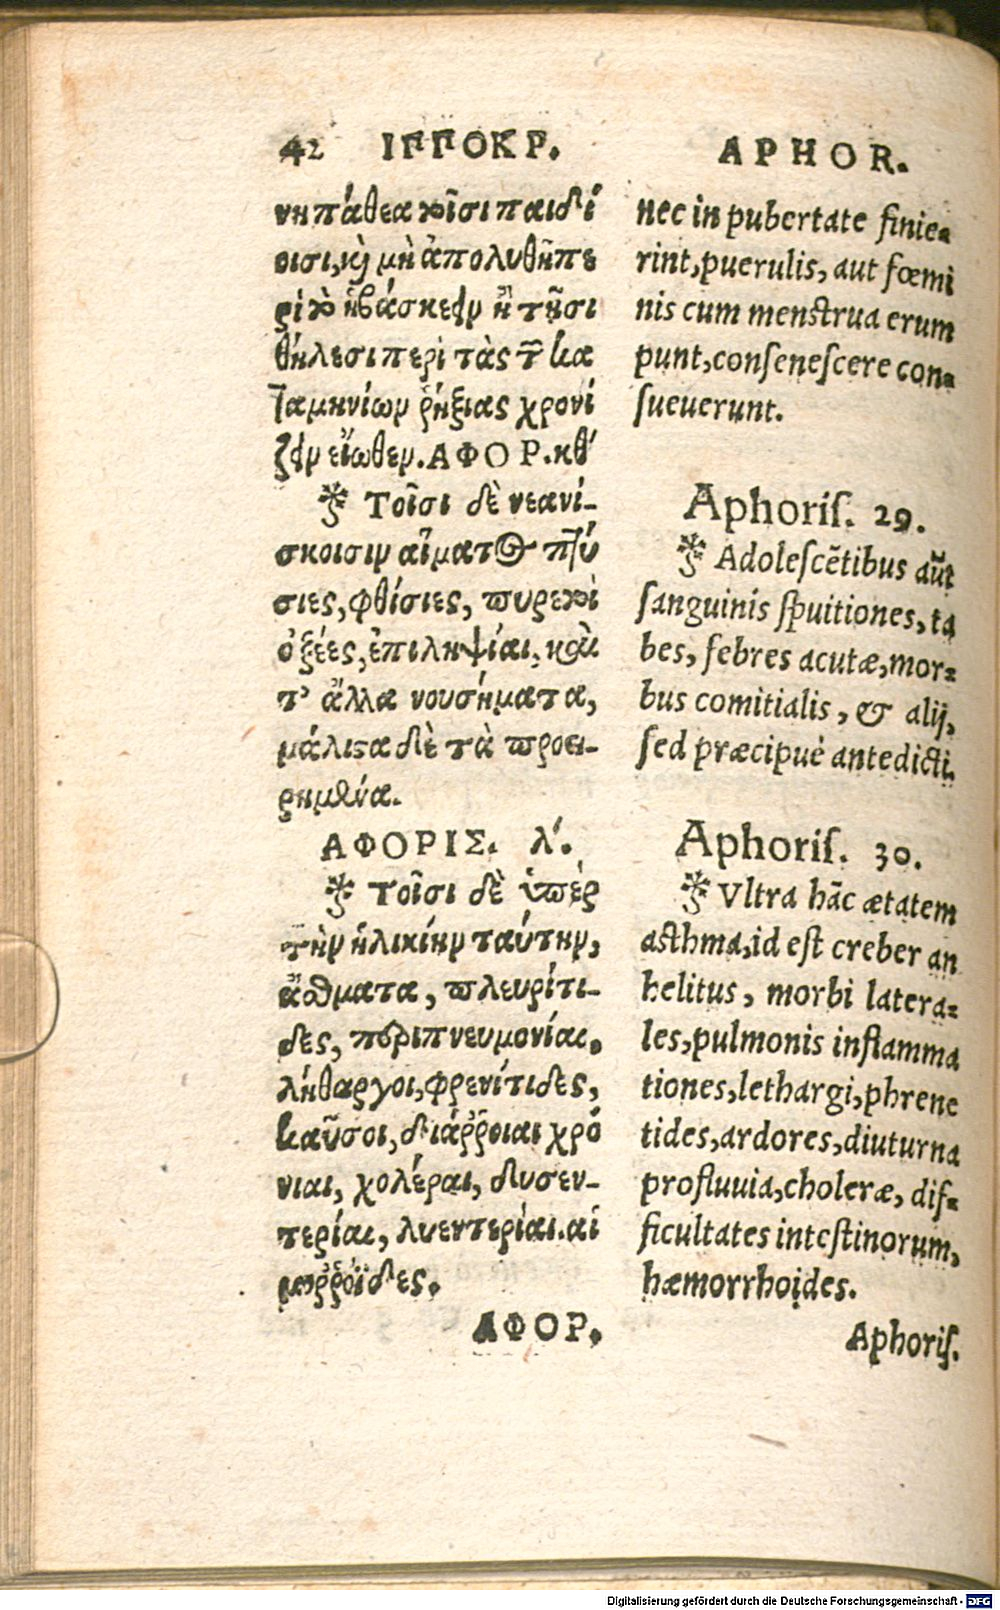 42 ΙΠΠΟΚΡ.
νη πάθεα τοῖσι παιδί
οισι, κὴ μὴ ἀπολυθῇ πε
ρὶ τὸ ἡβάσκειν ἢ τῇσι
θήλεσι περὶ τὰς τ͂ κα
ταμηνίων ῥήξιας χρονί
ζειν εἴωθεν. ΑΦΟΡ. κθʹ
Τοῖσι δὲ νεανί-
σκοισιν αἵματος πτύ
σιες, φθίσιες, πυρετοὶ
ὀξέες, ἐπιληψίαι, καὶ
τ' ἄλλα νουσήματα,
μάλιϛα δὲ τὰ προει-
ρημένα.
ΑΦΟΡΙΣ. λʹ.
Τοῖσι δὲ ὑπὲρ
τὴν ἡλικίην ταύτην,
ἄσθματα, πλευρίτι-
δες, περιπνευμονίαι,
λήθαργοι, φρενίτιδες,
καῦσοι, διάῤῥοιαι χρό
νιαι, χολέραι, δυσεν-
τερίαι, λυεντερίαι. αἱ
μοῤῥοΐδες.
ΑΦΟΡ.
APHOR.
nec in pubertate finie-
rint, puerulis, aut fœmi
nis cum menstrua erum
punt, conſeneſcere con-
ſueuerunt.
Aphoriſ. 29.
Adoleſcẽtibus aũt
ſanguinis ſpuitiones, ta
bes, febres acutæ, mor-
bus comitialis, & alij,
ſed præcipuè antedicti.
Aphoriſ. 30.
Vltra hãc ætatem
asthma, id eſt creber an
helitus, morbi latera-
les, pulmonis inflamma
tiones, lethargi, phrene
tides, ardores, diuturna
profluuia, choleræ, diſ-
ficultates intestinorum,
hæmorrhoides.
Aphoriſ.
Digitalisierung gefördert durch die Deutsche Forschungsgemeinschaft - DFG